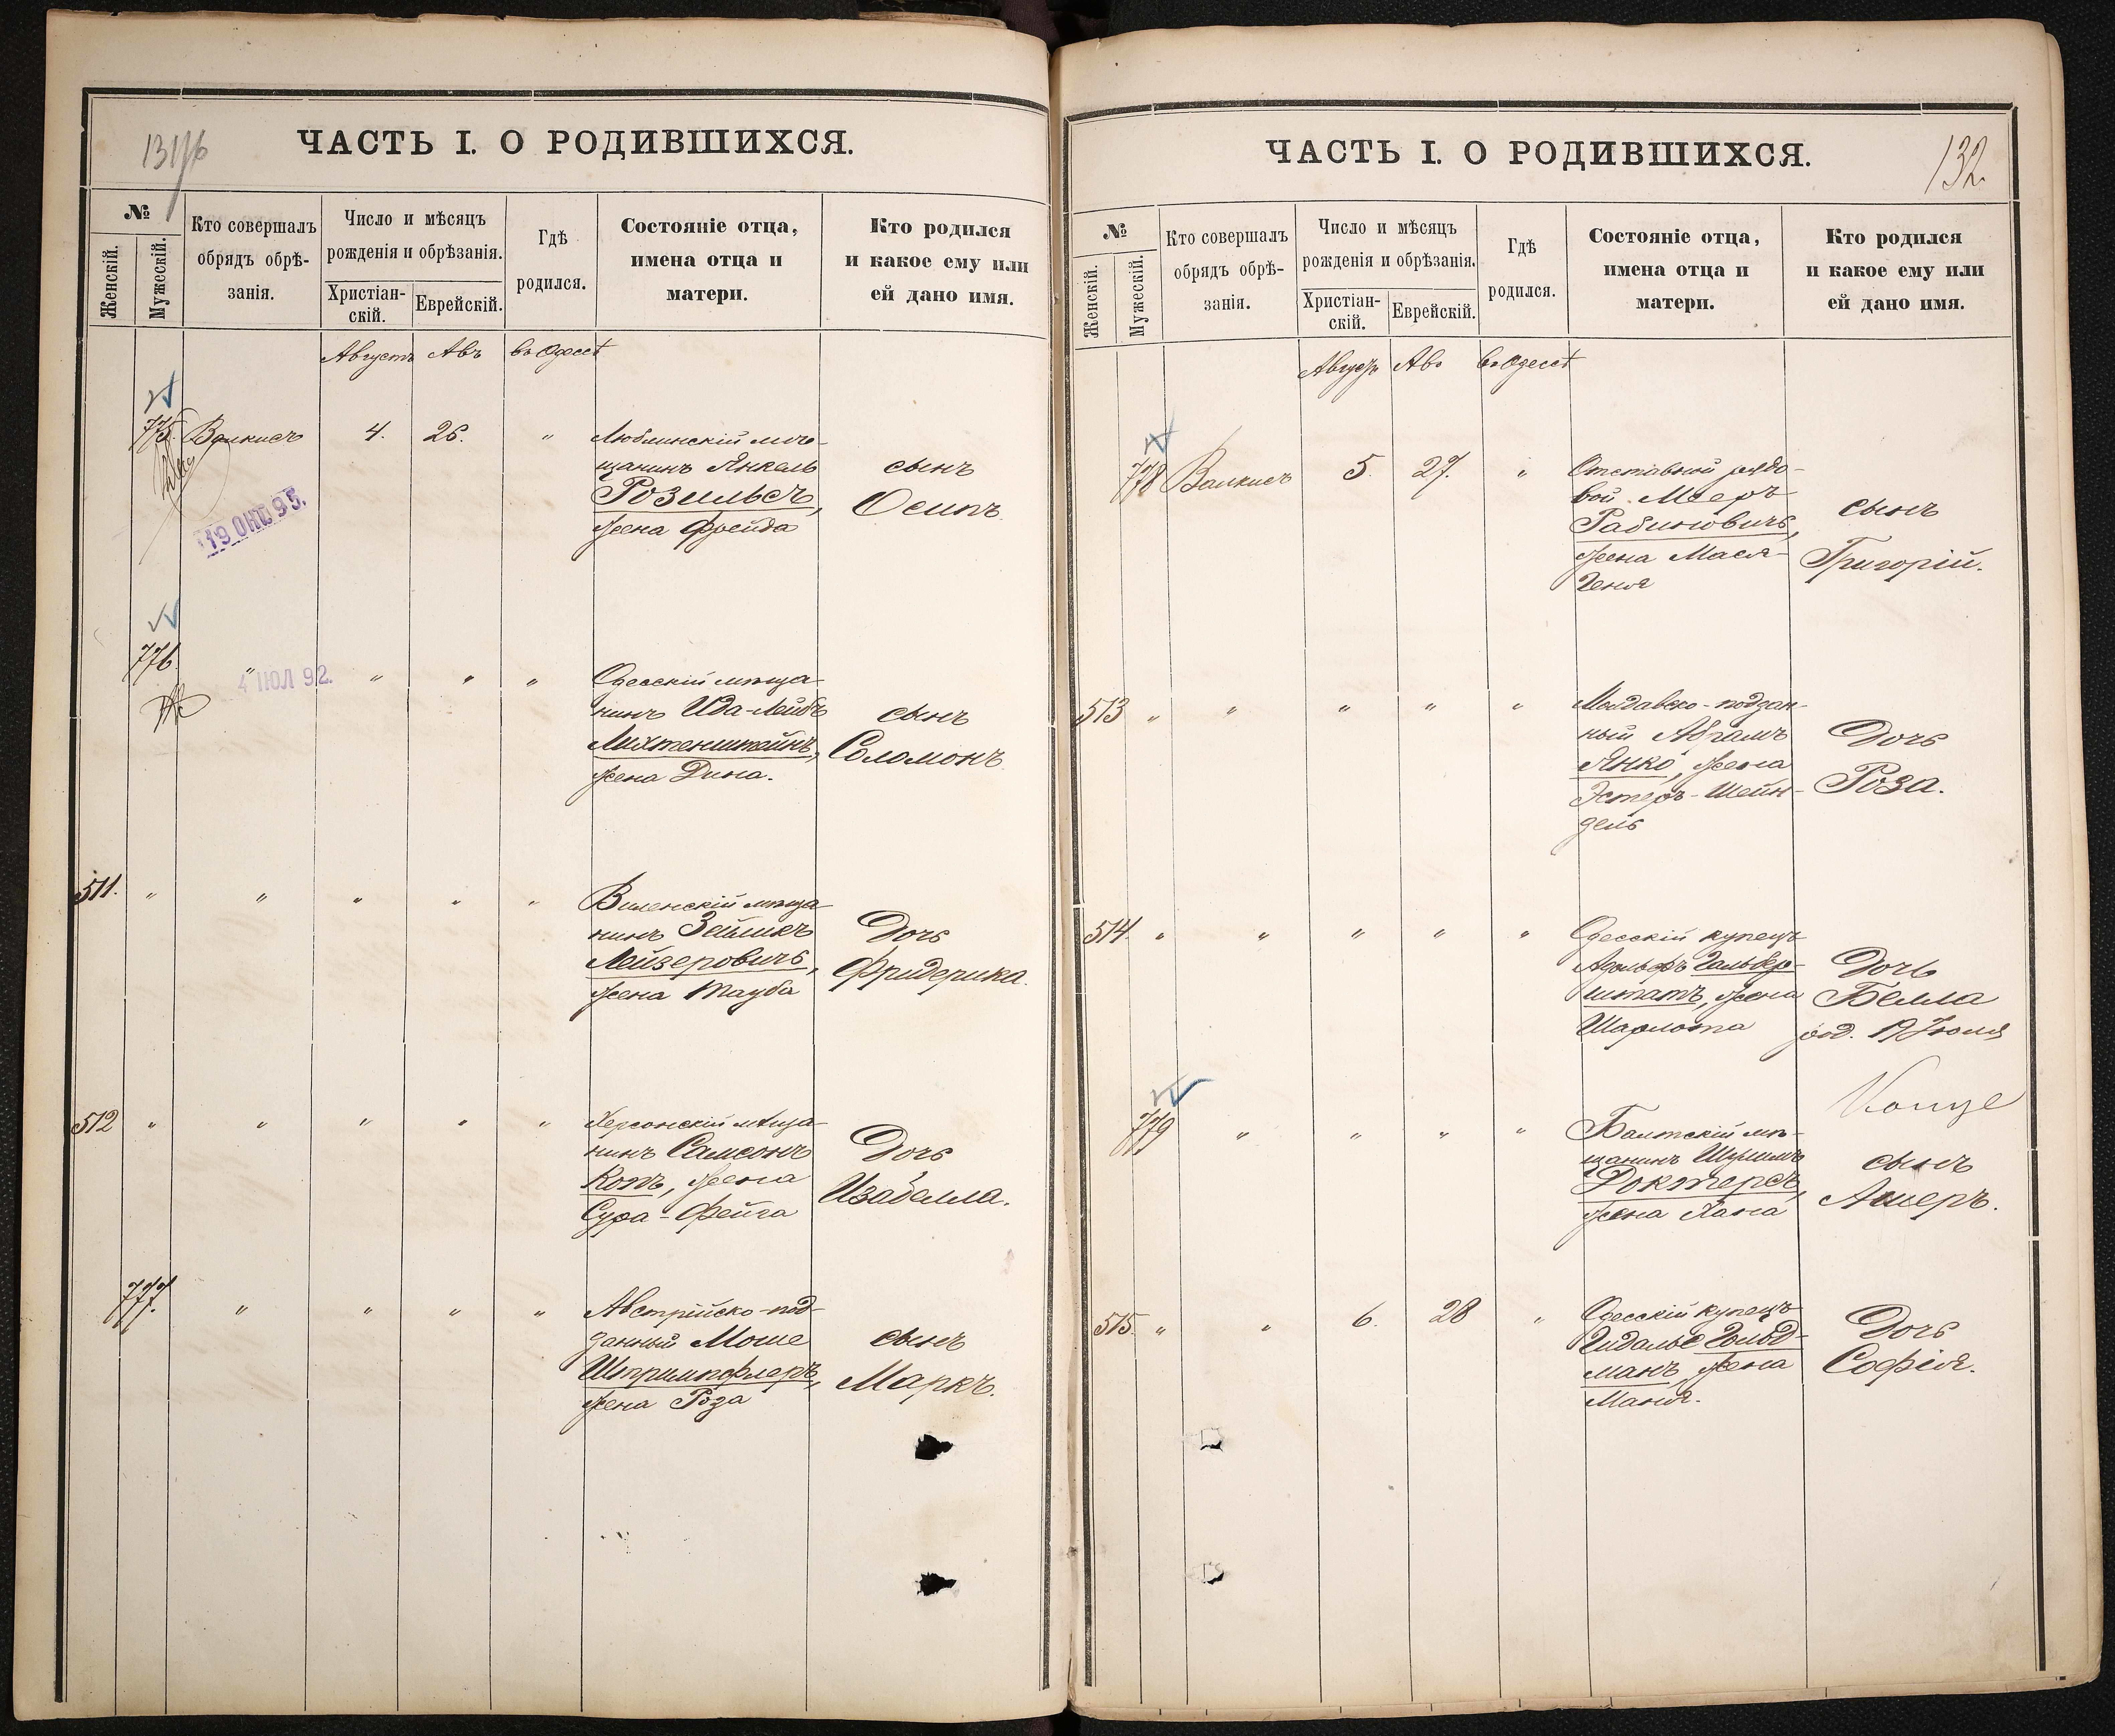 ЧАСТЬ I. О РОДИВШИХСЯ.
№
Женскій.
Мужескій.
Кто совершалъ
обрядъ обрѣ-
занія.
Число и мѣсяцъ
рожденія и обрѣзанія.
Христіан-
скій.
Еврейскій.
Гдѣ
родился.
Состояніе отца,
имена отца и
матери.
Кто родился
и какое ему или
ей дано имя.
Августъ Авъ въ Одессѣ
775. 4. 26. "
19 ОКТ. 95.
Люблинскій мѣ-
щанинъ Янкель
Розильсъ,
жена Фрейда
сынъ
Осипъ
776. " " " "
4 ІЮЛ 92.
Одесскій мѣща-
нинъ Ида-Лейбъ
Лихтенштейнъ,
жена Дина.
сынъ
Соломонъ
511. " " " " "
Виленскій мѣща-
нинъ Зеймикъ
Лейзеровичъ,
жена Тауба
Дочь
Фридерика.
512 " " " " "
Херсонскій мѣща-
нинъ Самсонъ
жена
Сура-Фейга
Дочь
Изабелла.
777. " " " "
Австрійско-под-
данный Моше
Штримпфлеръ,
жена Роза
сынъ
Маркъ.
ЧАСТЬ I. О РОДИВШИХСЯ.
132.
№
Женскій.
Мужескій.
Кто совершалъ
обрядъ обрѣ-
занія.
Число и мѣсяцъ
рожденія и обрѣзанія.
Христіан-
скій.
Еврейскій.
Гдѣ
родился.
Состояніе отца,
имена отца и
матери.
Кто родился
и какое ему или
ей дано имя.
Августъ Авъ въ Одессѣ
778 5. 27. "
Отставной рядо-
вой Мееръ
Рабиновичъ,
жена Мася-
Геня
сынъ
Григорій.
513 " " " " "
Молдавско-поддан-
ный Абрамъ
Янко, жена
Эстеръ-Шейн-
дель
Дочь
Роза.
514. " " " " "
Одесскій купецъ
Адольфъ Гальбер-
штатъ, жена
Шарлота
Дочь
Белла
род. 19 Іюля
779 " " " "
Балтскій мѣ-
щанинъ
Докторъ,
жена Хана
сынъ
Ашеръ.
515. " " 6. 28 "
Одесскій купецъ
Гидалье Гольд-
манъ, жена
Маня.
Дочь
Софія.